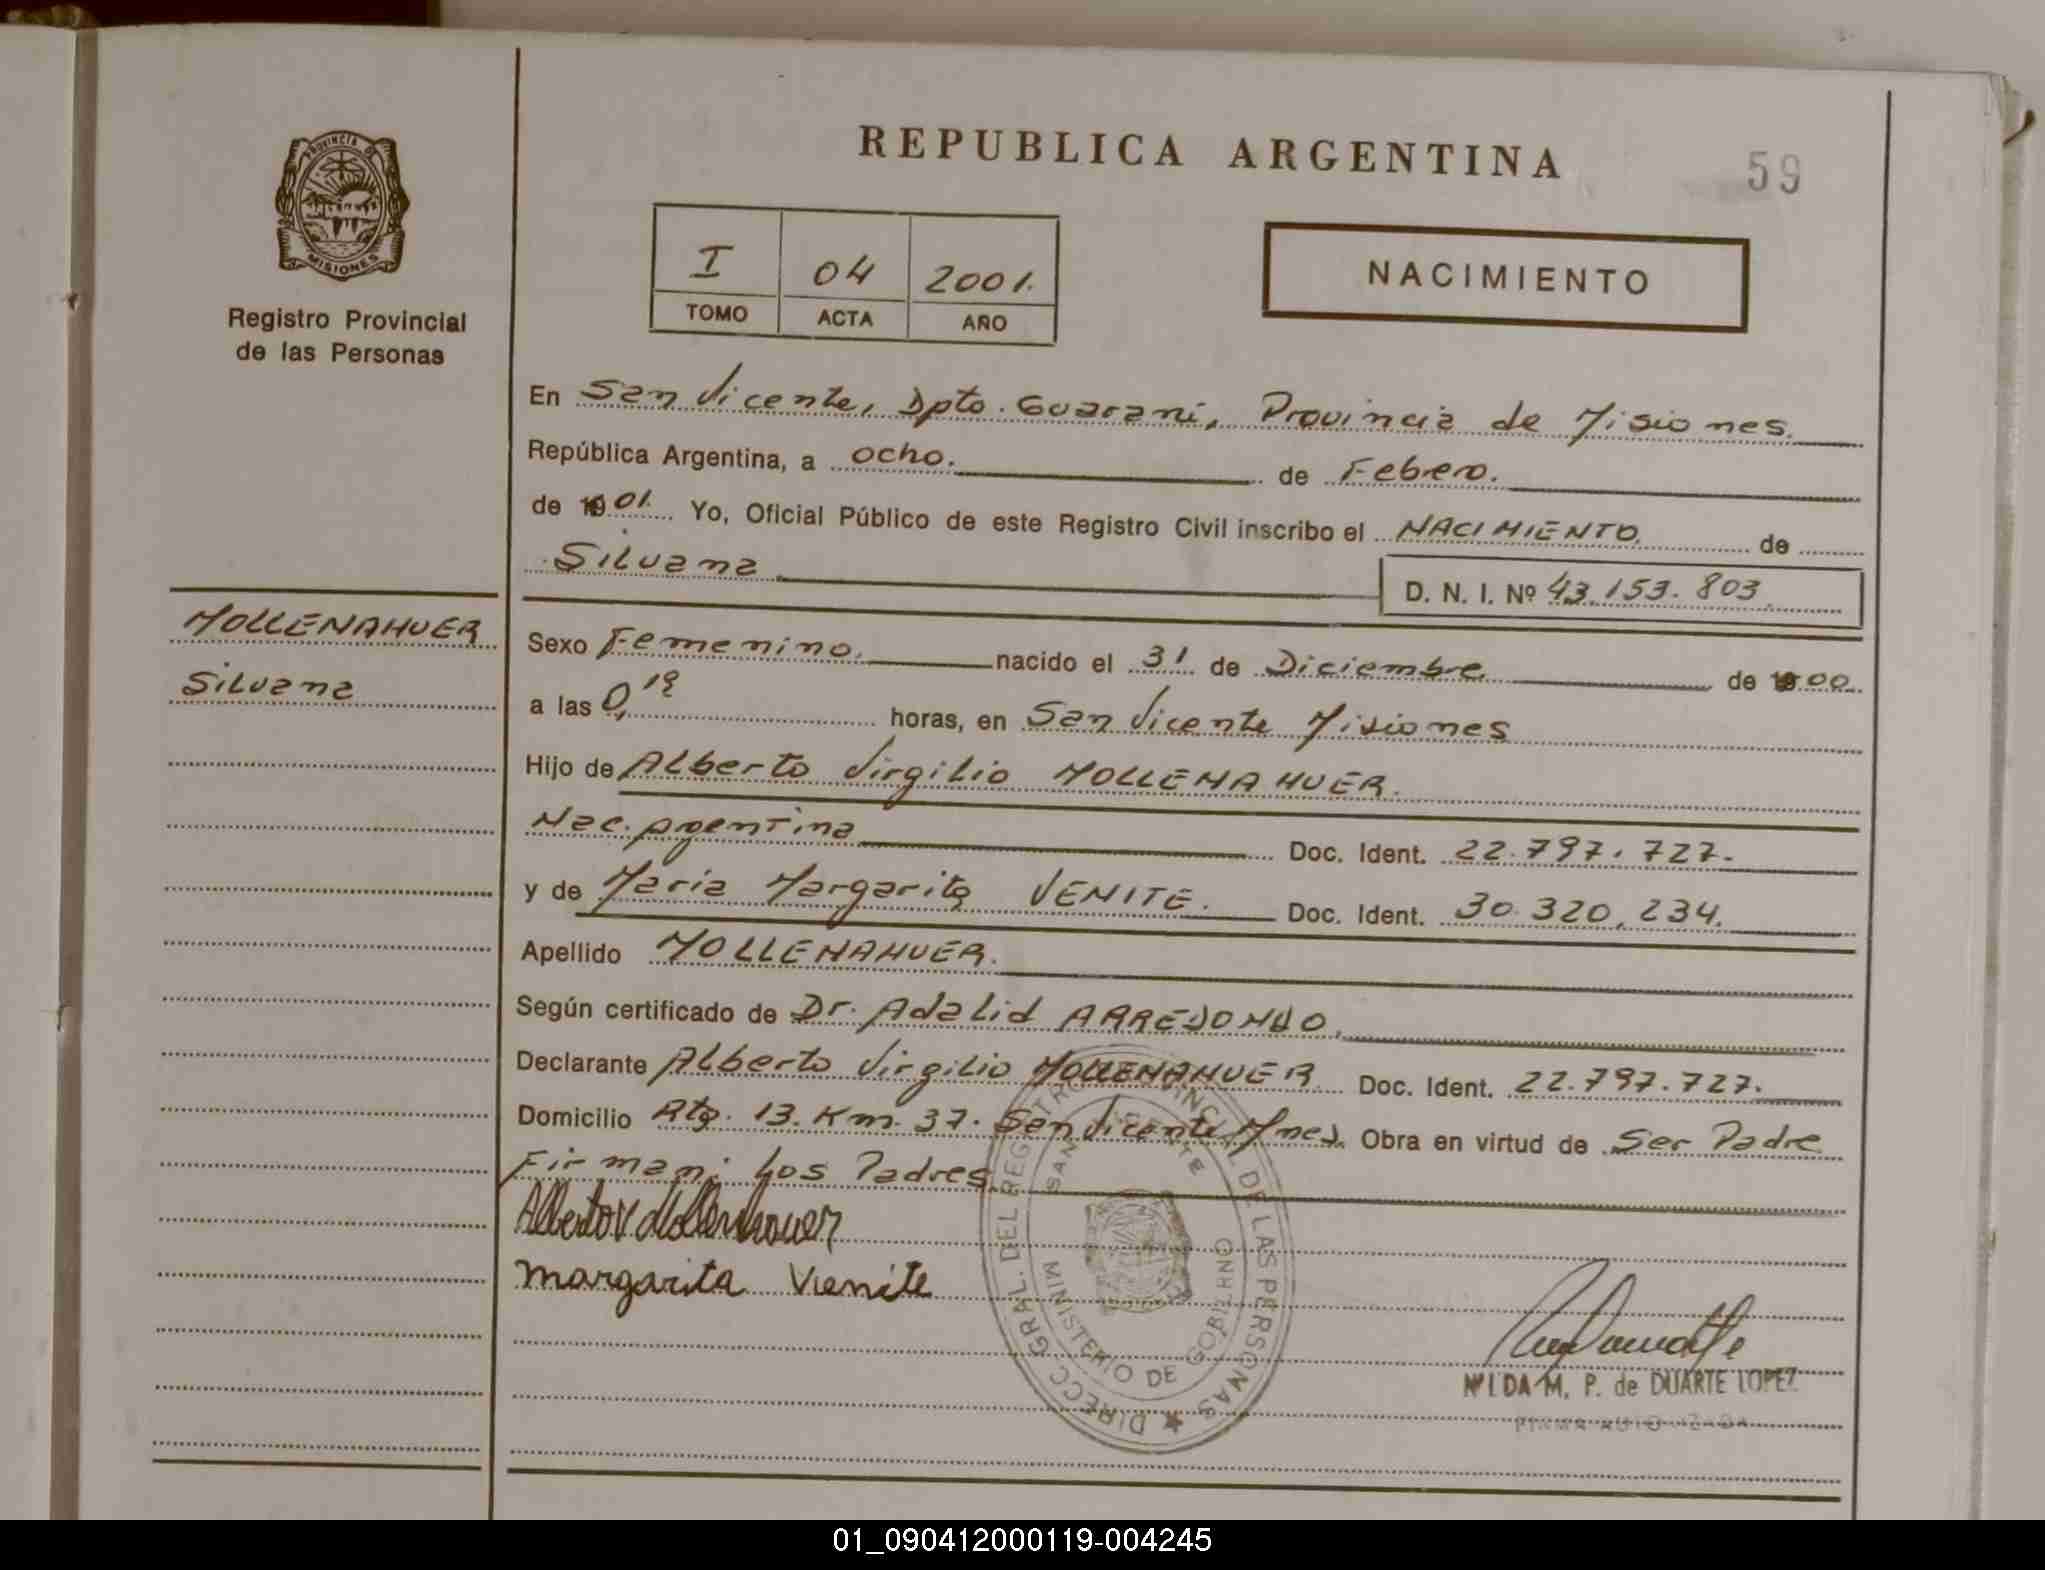 REPUBLICA ARGENTINA
59
PROVINCIA DE
MISIONES
Registro Provincial
de las Personas
I 04 2001.
TOMO ACTA AÑO
NACIMIENTO
En San Vicente, Dpto. Guaraní, Provincia de Misiones.
República Argentina, a ocho. de Febero.
de 19 01. Yo, Oficial Público de este Registro Civil inscribo el NACIMIENTO. de
Silvana
D. N. I. Nº 43.153.803
MOLLENAHUER
Silvana
Sexo Femenino. nacido el 31 de Diciembre de 19 00
a las 0,19 horas, en San Vicente Misiones
Hijo de Alberto Virgilio MOLLENAHUER.
Nac. Argentina Doc. Ident. 22.797.727.
y de Maria Margarita VENITE. Doc. Ident. 30.320.234.
Apellido MOLLENAHUER.
Según certificado de Dr. Adalid ARREDONDO.
Declarante Alberto Virgilio MOLLENAHUER Doc. Ident. 22.797.727.
Domicilio Rta. 13. Km. 37. San Vicente Mnes. Obra en virtud de Ser Padre
Firman: Los Padres
Alberto V Mollenhauer
margarita Venite
DIRECC GRAL. DEL REGISTRO PROVINCIAL DE LAS PERSONAS
SAN VICENTE
MINISTERIO DE GOBIERNO
NILDA M. P. de DUARTE LOPEZ
FIRMA AUTORIZADA
01_090412000119-004245